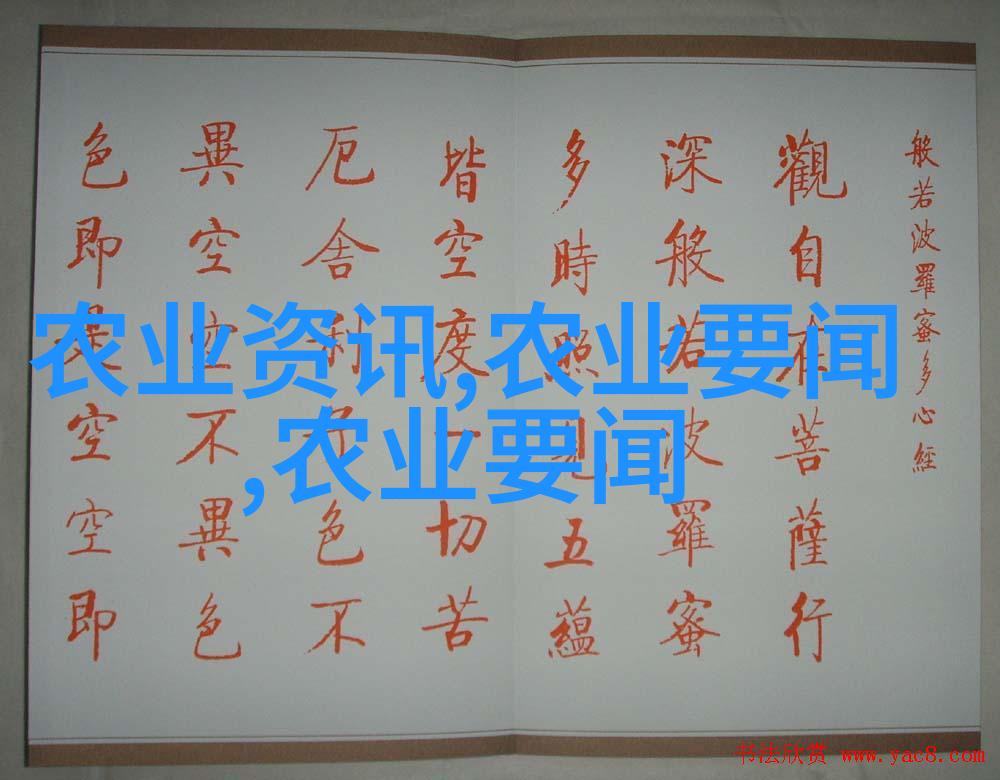 般若波羅蜜多心經
觀自在菩薩行
深般若波羅蜜
多時照見五蘊
皆空度一切苦
厄舍利子色不
異空空不異色
色即是空空即
农业资讯,农业要闻
,农业要闻
书法欣赏 www.yac8.com